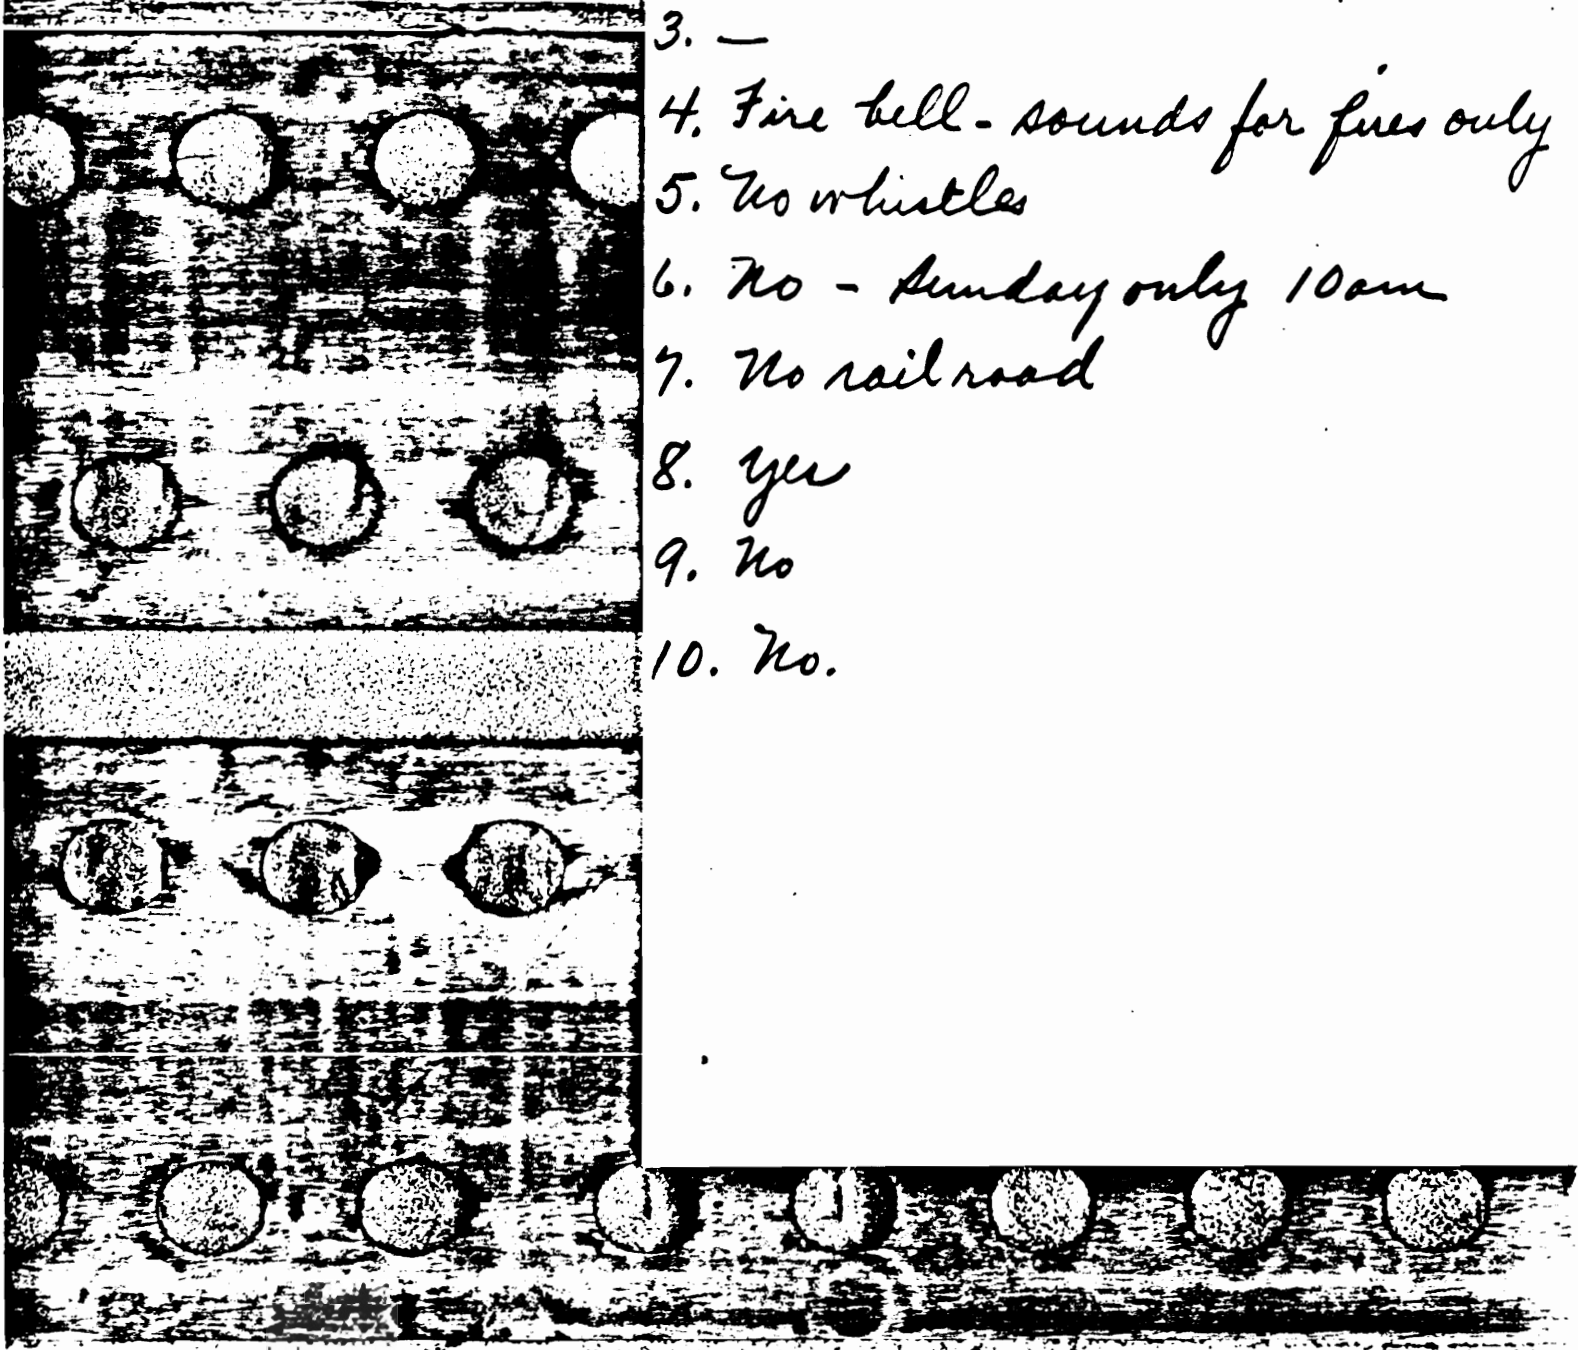 3. —
4. Fire bell - sounds for fires only
5. No whistles
6. No - Sunday only 10am
7. No railroad
8. yes
9. No
10. No.